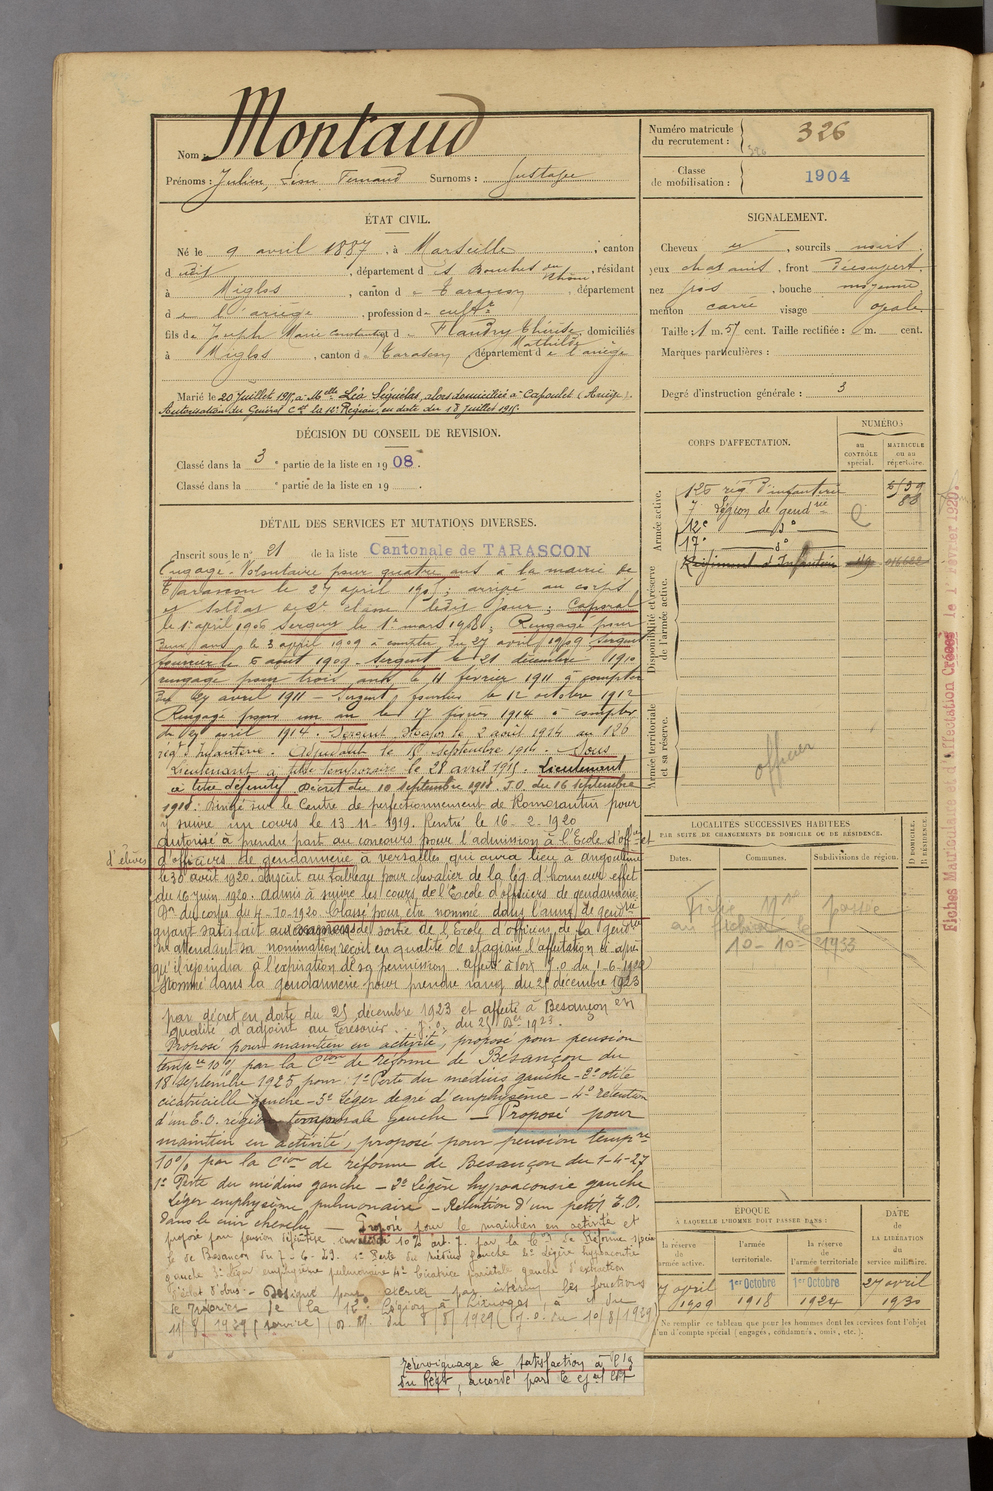 Nom : Montaud
Prénoms : Julien, Léon Fernand Surnoms : Gustave
ÉTAT CIVIL.
Né le 9 avril 1887, à Marseille, canton
d dit, département des Bouches du Rhône, résidant
à Miglos, canton de Tarascon, département
de l'ariège, profession de cultr
fils de Joseph Marie Constantin et de Flaudry Thérèse Mathilde, domiciliés
à Miglos, canton de Tarascon, département de l'ariège
Marié le 20 Juillet 1915, à Melle Léa Séquélas, alors domiciliée à Capoulet (Ariège).
Autorisation du Général Ct la 12e Région, en date du 18 Juillet 1915.
DÉCISION DU CONSEIL DE REVISION.
Classé dans la 3e partie de la liste en 1908.
Classé dans la e partie de la liste en 19
DÉTAIL DES SERVICES ET MUTATIONS DIVERSES.
Inscrit sous le n° 21 de la liste Cantonale de TARASCON
Engagé-Volontaire pour quatre ans à la mairie de
Tarascon le 27 avril 1905; arrivé au corps
et soldat de 2e classe ledit jour; Caporal
le 1er avril 1906 Sergent le 1er mars 1908; Rengagé pour
deux ans, le 3 avril 1909 à compter du 27 avril 1909 Sergent
fourrier le 6 août 1909. Sergent le 21 décembre 1910
rengagé pour trois ans le 11 février 1911 à compter
du 27 avril 1911 – Sergent fourrier le 12 octobre 1912
Rengagé pour un an le 17 février 1914 à compter
du 27 avril 1914. Sergent Major le 2 août 1914 au 126
régt d'Infanterie. Adjudant le 18 septembre 1914. Sous
Lieutenant à titre temporaire le 28 avril 1915. Lieutenant
à titre définitif Décret du 10 septembre 1918. J.O. du 16 septembre
1918. Dirigé sur le Centre de perfectionnement de Romorantin pour
y suivre un cours le 13-11-1919. Rentré le 16-2-1920
autorisé à prendre part au concours pour l'admission à l'Ecole d'offers et
d'élèves d'officiers de gendarmerie à versailles qui aura lieu à angoulême
le 30 août 1920. Inscrit au tableau pour chevalier de la lég. d'honneur effet
du 16 juin 1920. admis à suivre les cours de l'Ecole d'officiers de gendarmerie
Don du corps du 4-10-1920. Classé pour être nommé dans l'arme de gendrie
ayant satisfait aux examens de sortie de l'Ecole d'officiers de la gendrie
en attendant sa nomination reçoit en qualité de stagiaire l'affectation ci après
qu'il rejoindra à l'expiration de sa permission. affecté à J.O du 1-6-1922
Nommé dans la gendarmerie pour prendre rang du 25 décembre 1923
par décret en date du 25 décembre 1923 et affecté à Besançon en
qualité d'adjoint au Trésorier. J.O. du 25 Dbre 1923.
Proposé pour maintien en activité, proposé pour pension
tempre 10% par la Cion de réforme de Besançon du
18 septembre 1925 pour: 1° Perte du médius gauche – 2° otite
cicatricielle gauche – 3° Léger degré d'emphysème – 4° rétention
d'un E.O. région temporale Gauche – Proposé pour
maintien en activité, proposé pour pension tempre
10% par la Cion de réforme de Besançon du 1-4-27
1° Perte du médius gauche – 2° Légère hypoacousie gauche
Léger emphysème pulmonaire – Rétention d'un petit E.O.
dans le cuir chevelu – Proposé pour le maintien en activité et
proposé pour pension définitive invalidité 10% art. 7. par la C.S. de Réforme spéciale
de Besançon du 7-6-29. 1° Perte du médius gauche 2° légère hypoacousie
gauche 3° Léger emphysème pulmonaire 4° Cicatrice pariétale gauche d'extraction
d'éclat d'obus. – Désigné pour exercer par interim les fonctions
de Trésorier de la 12e Légion à Limoges, à c. du
11/8/1929 (service) (D.M. du 8/8/1929) (J.O. du 10/8/1929)
Témoignage de satisfaction à l'o.
du Régt, accordé par le Gal Ct
Numéro matricule
du recrutement : 326
326
Classe
de mobilisation : 1904
SIGNALEMENT.
Cheveux et, sourcils noirs,
yeux châtains, front découvert,
nez gros, bouche moyenne,
menton carré visage ovale.
Taille : 1 m. 57 cent. Taille rectifiée : m. cent.
Marques particulières :
Degré d'instruction générale : 3
CORPS D'AFFECTATION.
NUMÉROS
au CONTRÔLE spécial.
MATRICULE ou au répertoire.
Armée active.
126 rég d'infanterie
7 Légion de gendrie
12e do
17e do
Régiment d'Infanterie
Disponibilité et réserve de l'armée active.
Armée territoriale et sa réserve.
officier
LOCALITÉS SUCCESSIVES HABITÉES
PAR SUITE DE CHANGEMENTS DE DOMICILE OU DE RÉSIDENCE.
Dates. Communes. Subdivisions de région.
D. DOMICILE. R. RÉSIDENCE.
Fiche Mle passée
au fichier le
10-10-1933
ÉPOQUE
À LAQUELLE L'HOMME DOIT PASSER DANS :
la réserve de l'armée active.
l'armée territoriale.
la réserve de l'armée territoriale
DATE de LA LIBÉRATION du service militaire.
27 avril 1909
1er Octobre 1918
1er Octobre 1924
27 avril 1930
Ne remplir ce tableau que pour les hommes dont les services font l'objet
d'un décompte spécial (engagés, condamnés, omis, etc.).
Fiches Matriculaire et d'Affectation Créées le 1 février 1920.